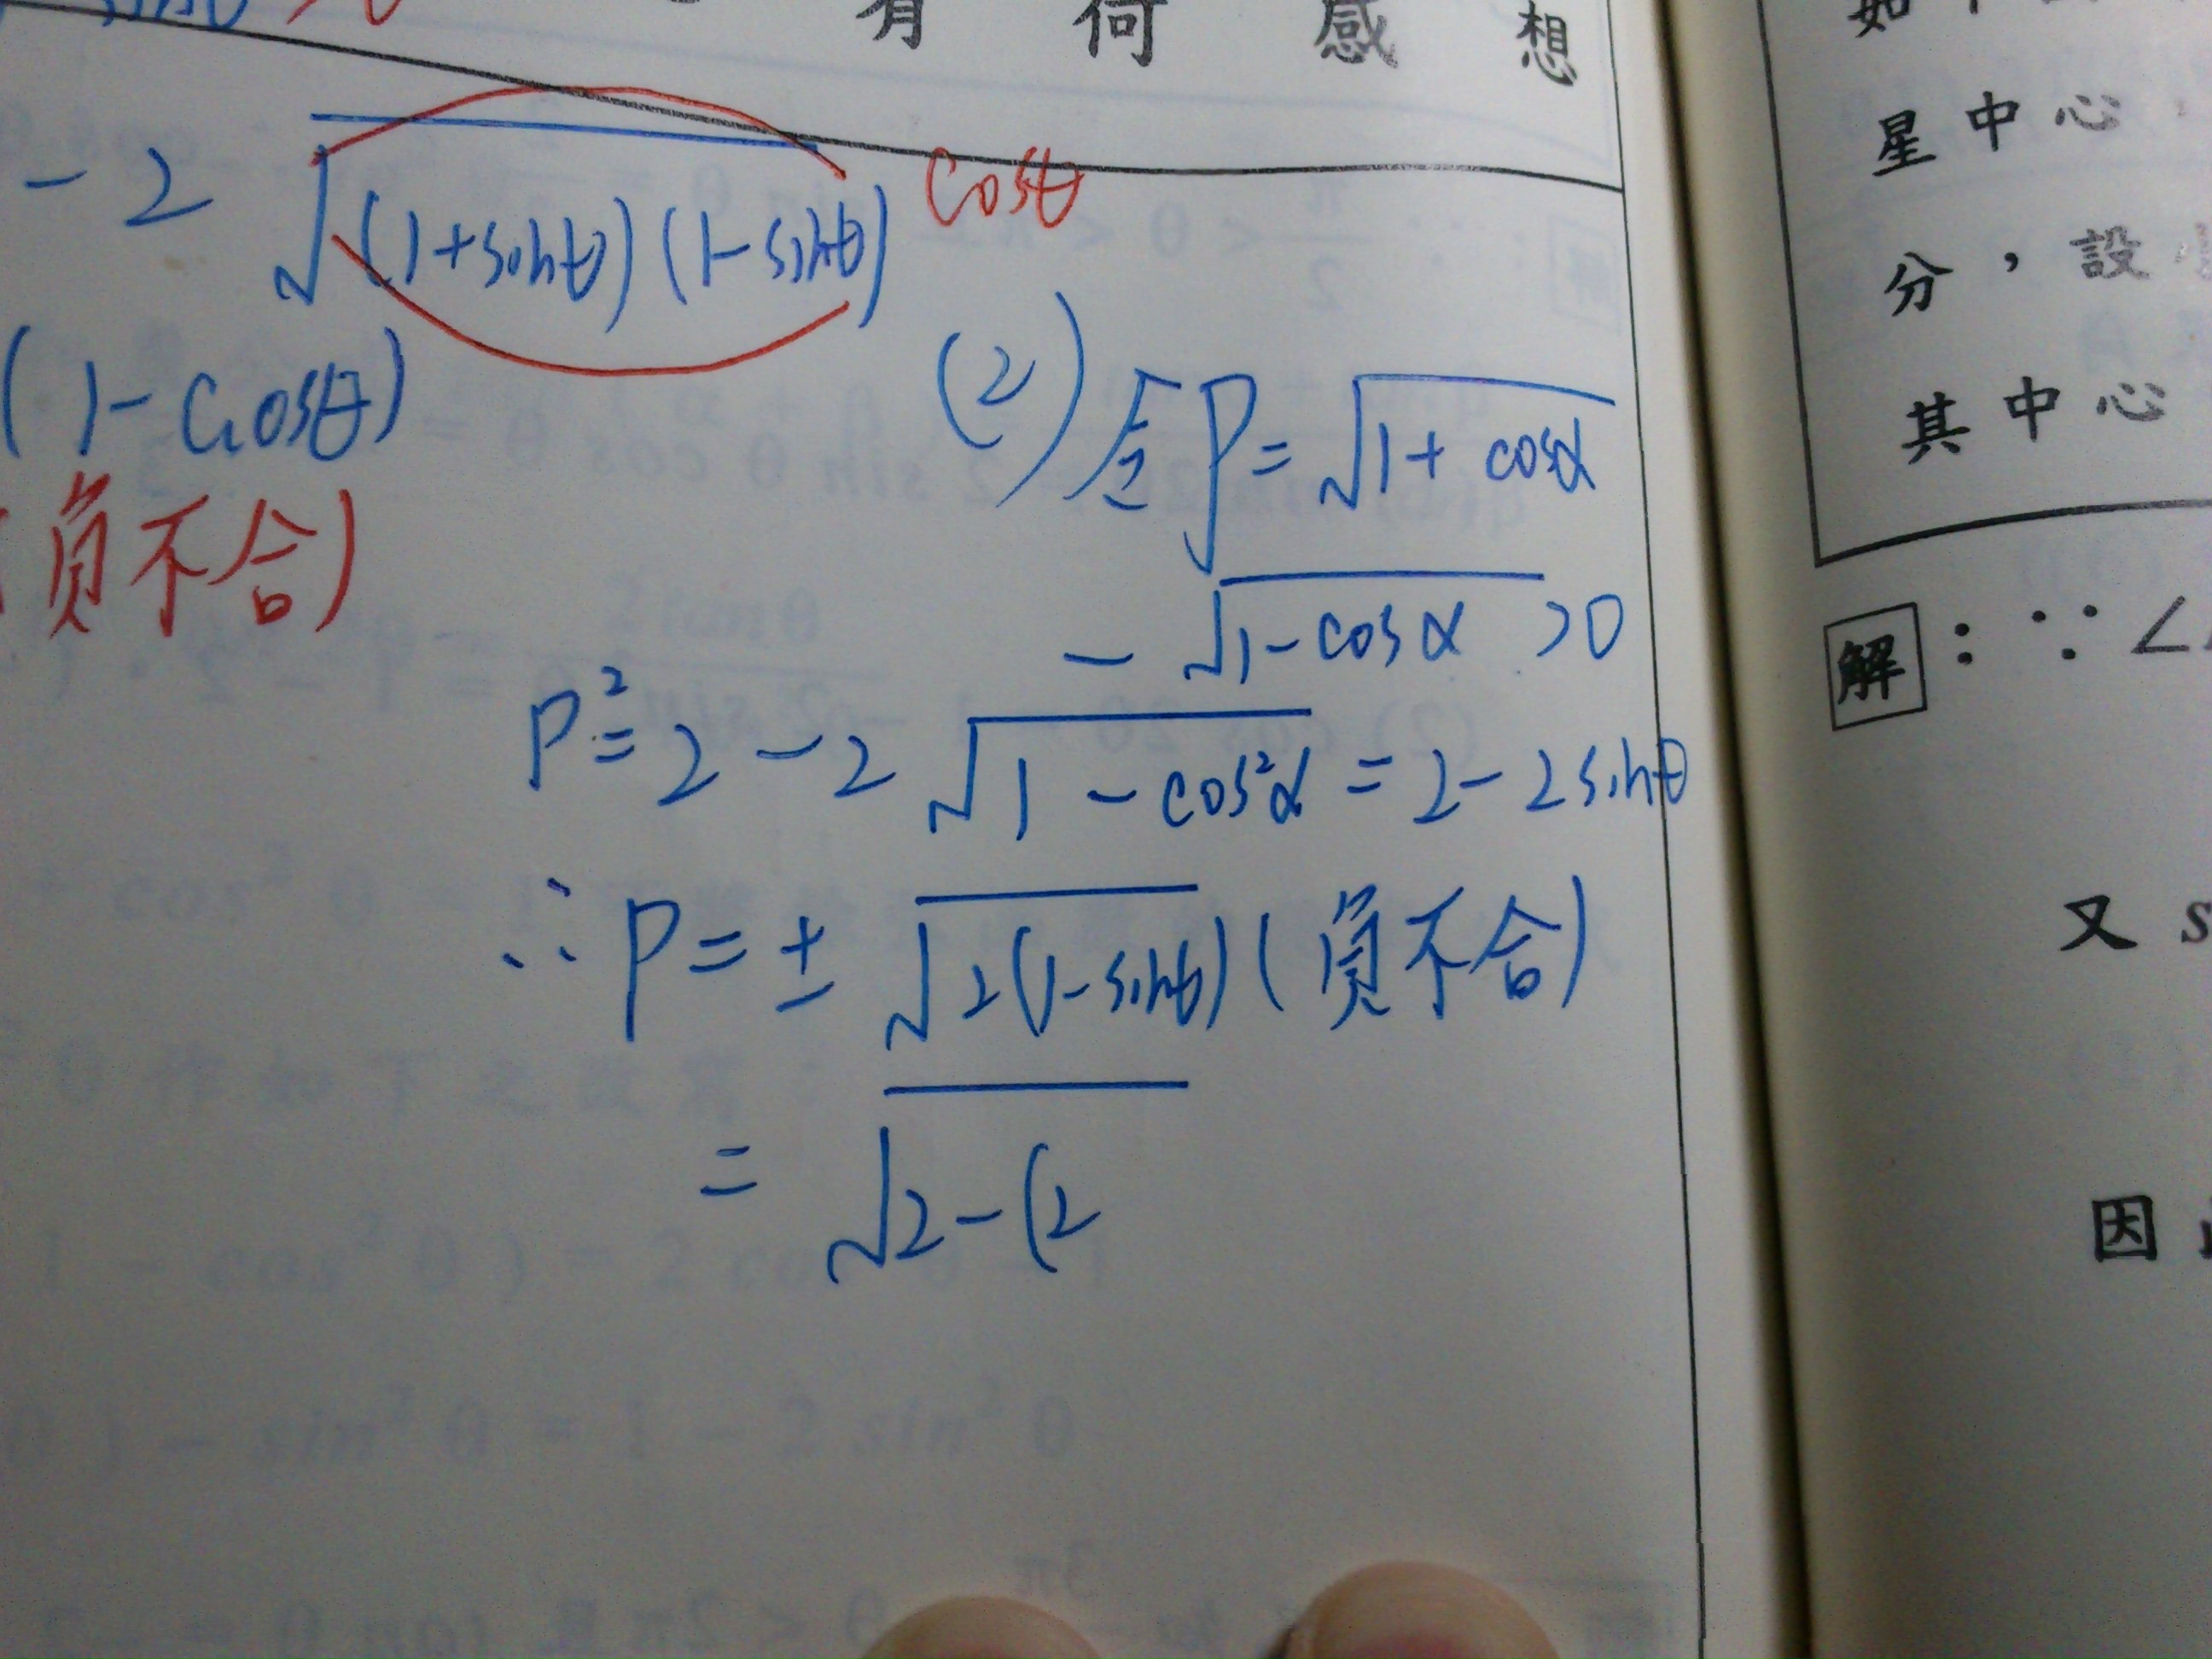 有何感想
- 2 √(1+sinθ)(1-sinθ) cosθ
(1-cosθ)
負不合)
(2) 令P=√1+cosα
- √1-cosα >0
P²=2-2√1-cos²α = 2-2sinθ
∴ P=± √2(1-sinθ) (負不合)
= √2-(2
星中心
分，設
其中心
解：∵∠
又 s
因